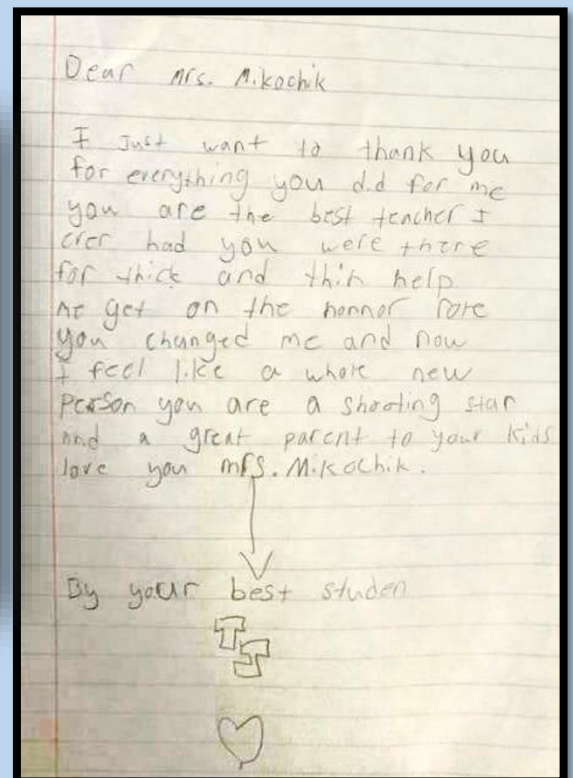 Dear Mrs. Mikochik
I Just want to thank you
for everything you did for me
you are the best teacher I
ever had you were there
for thick and thin help
me get on the honnor rore
you changed me and now
I feel like a whole new
person you are a shooting star
and a great parent to your kids
love you mrs. Mikochik.
By your best studen
TJ